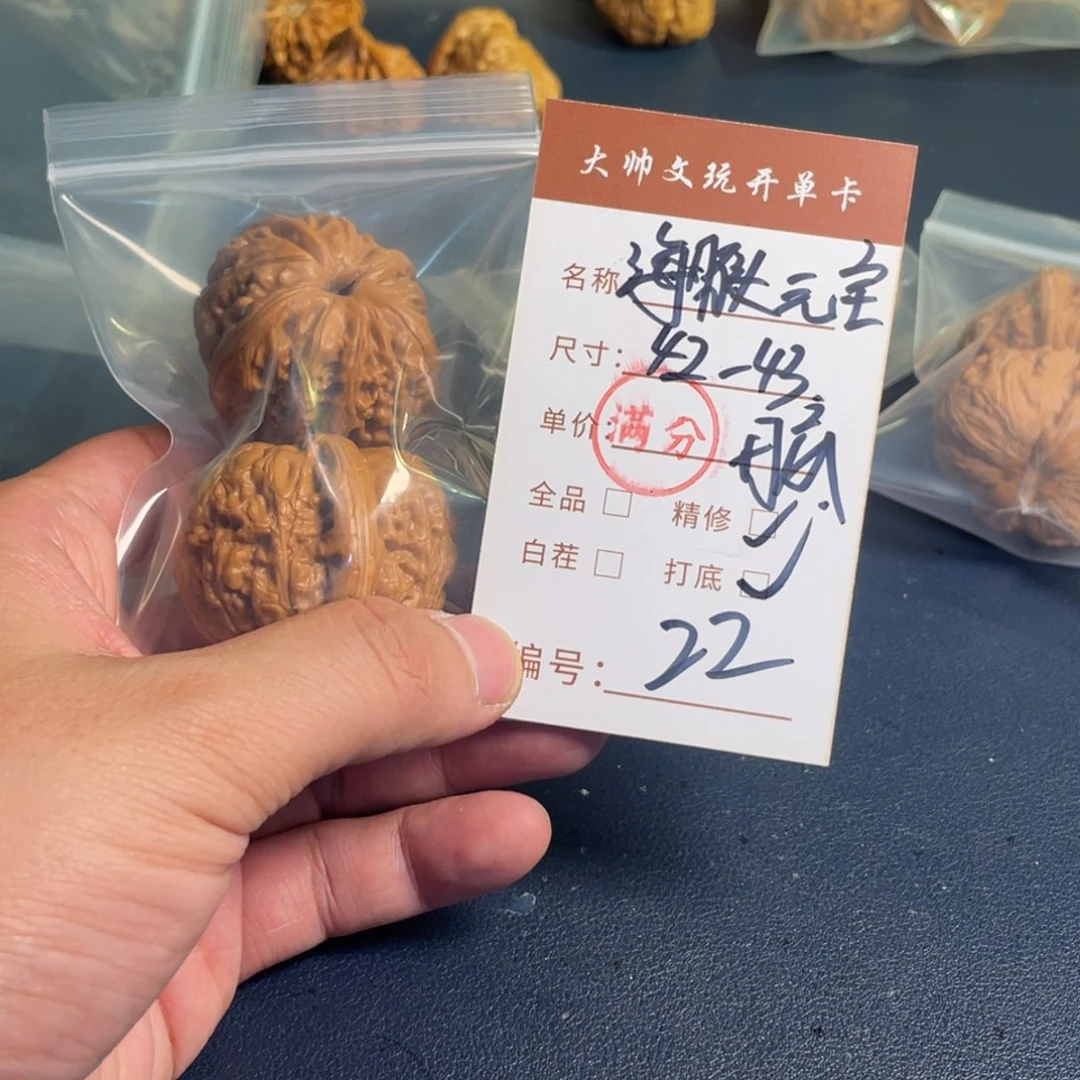 大帅文玩开单卡
名称 海豚元宝
尺寸: 42-43
单价: 满分
全品 □ 精修 □
白茬 □ 打底 □
编号: 22